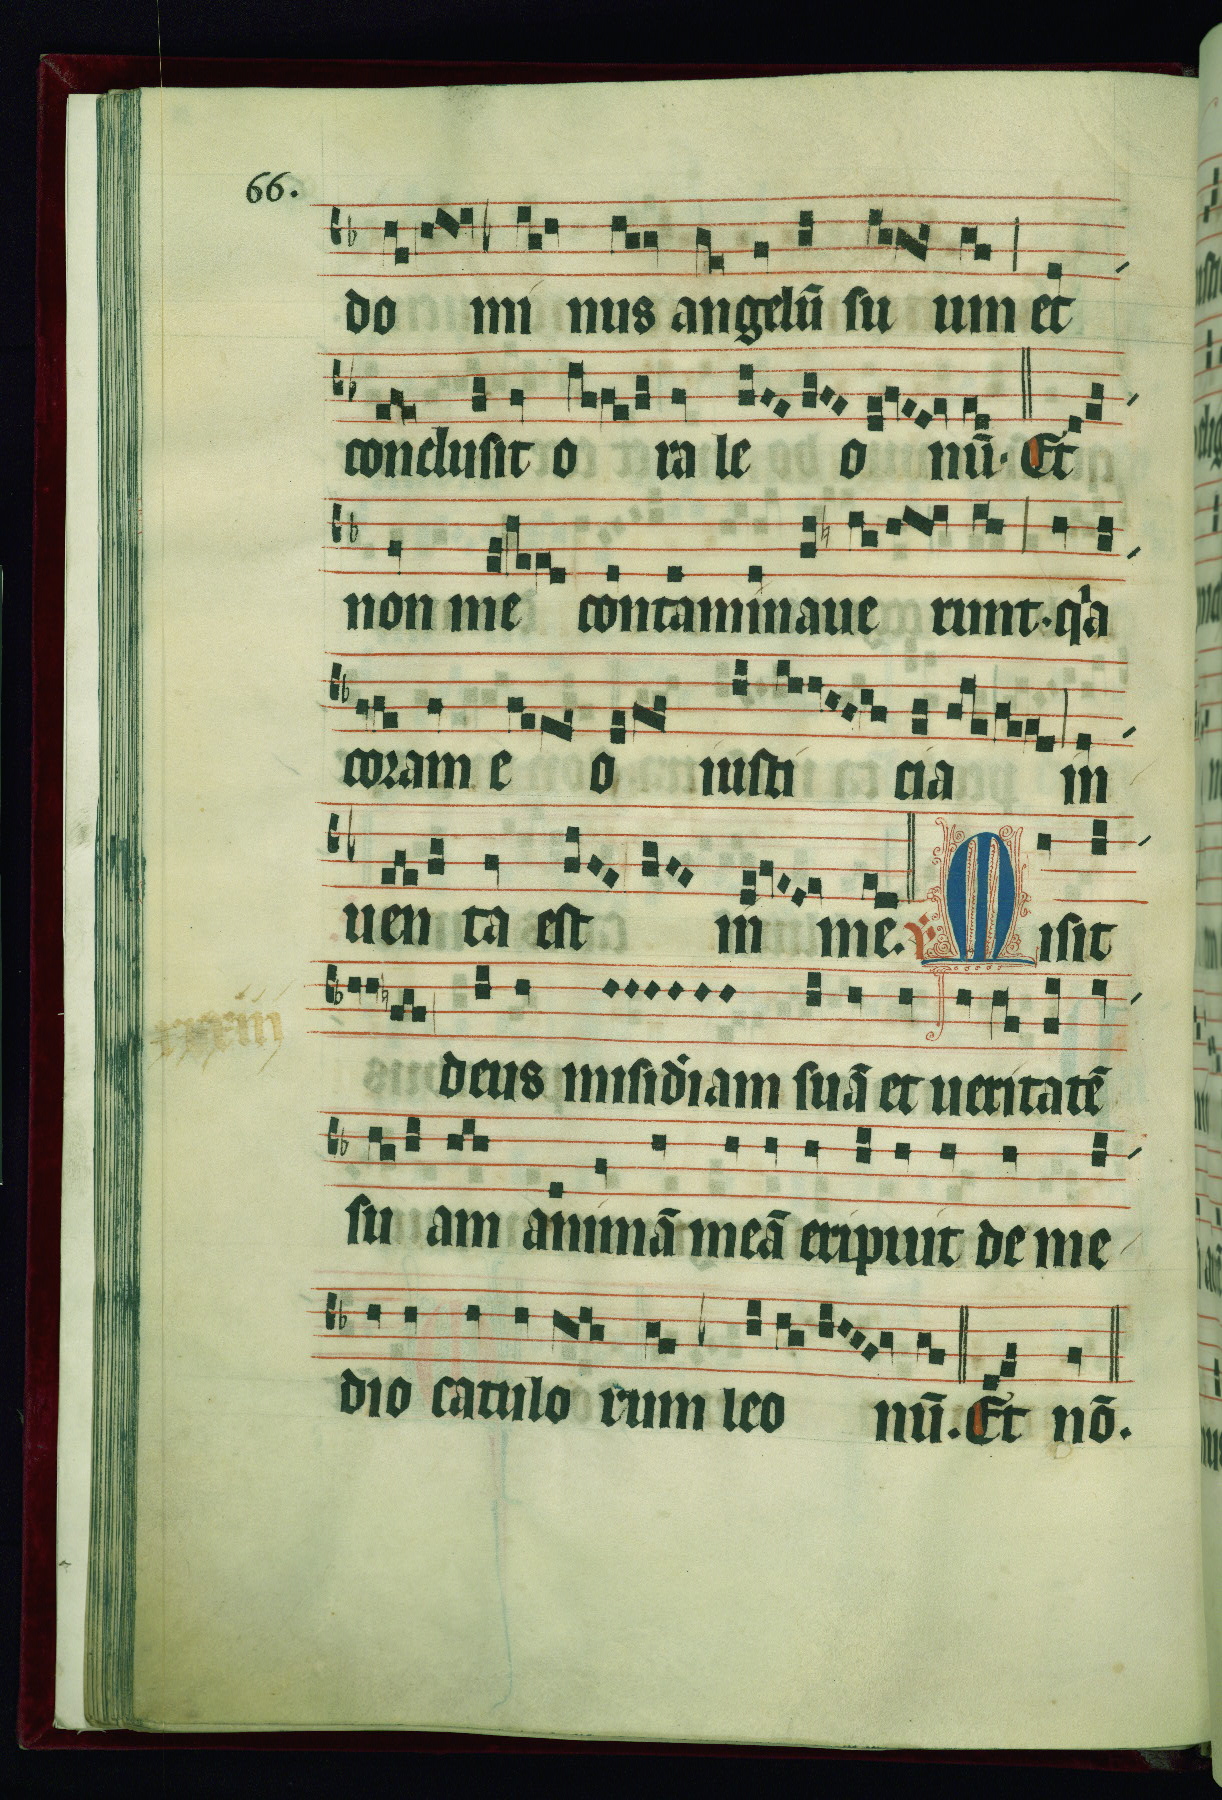 66.
do mi nus angelū su um et
conclusit o ra le o nū. Et
non me contaminaue runt. qͥa
coram e o iusti cia in
uen ta est in me. ℣. Misit
deus misiðiam suā et ueritatē
su am animā meā eripuit de me
dio catulo rum leo nū. Et nō.